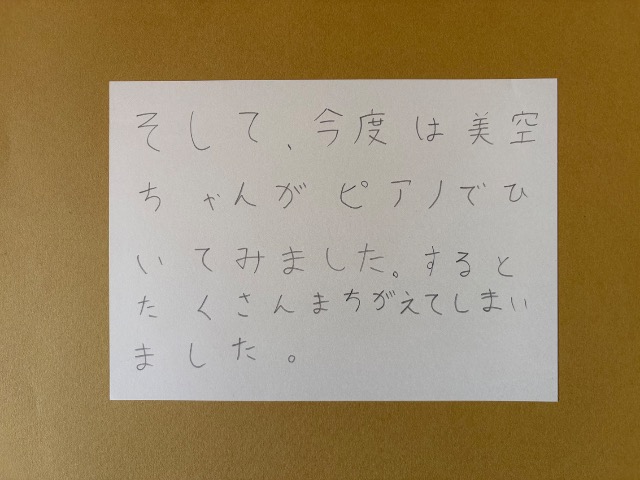 そして、今度は美空
ちゃんがピアノでひ
いてみました。すると
たくさんまちがえてしまい
ました。